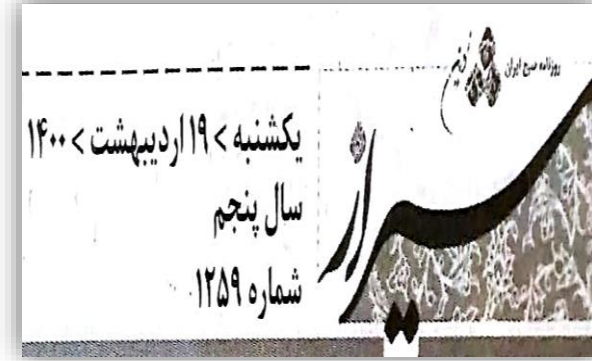 روزنامه صبح ایران
شیراز
یکشنبه > ۱۹ اردیبهشت > ۱۴۰۰
سال پنجم
شماره ۱۲۵۹